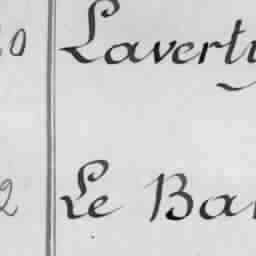 20 Laverty
2 Le Bar